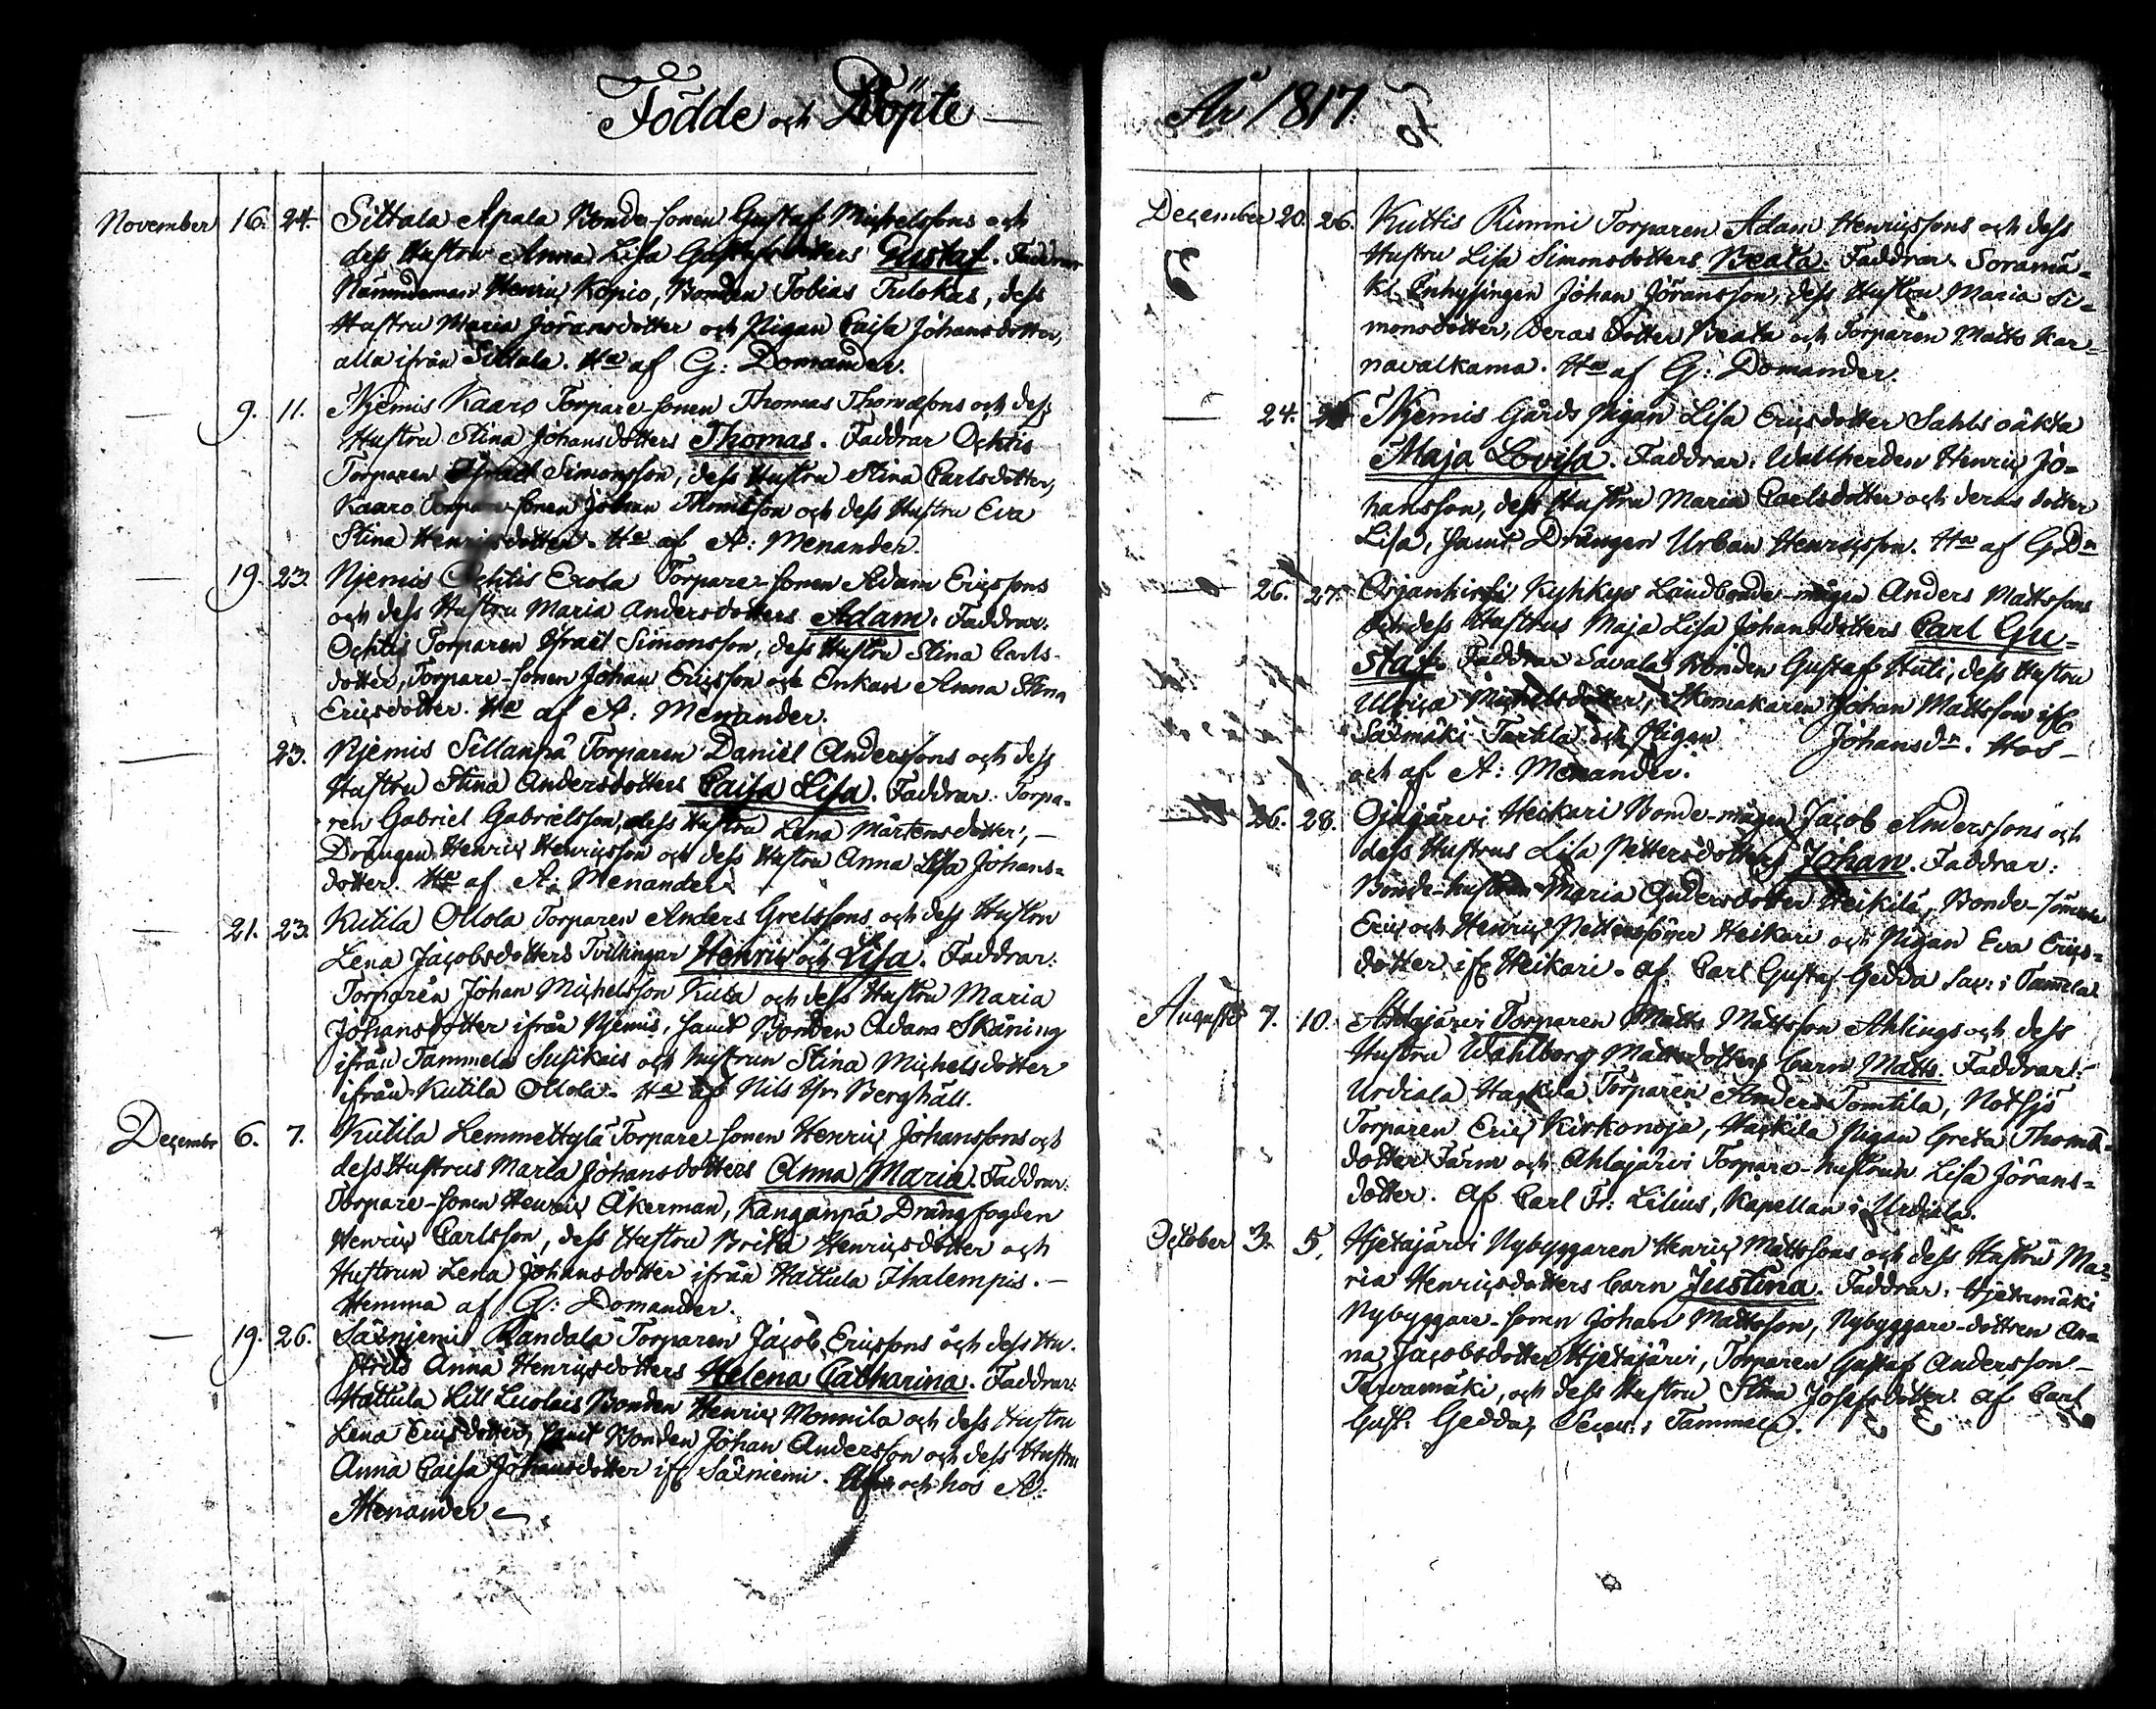 Födde och Döpte —
November 16. 24. Sittala Apala Bonde-sonen Gustaf Michelssons och
dess Hustru Anna Lisa Gustafsdotters Gustaf. Faddrar
Nämndeman Henric Kopio, Bonden Tobias Tulokas, dess
Hustru Maria Jöransdotter och Pigan Caisa Johansdotter,
alla ifrån Sittala. Ha af G: Domander.
— 9. 11. Njemis Kaaro Torpare-sonen Thomas Thomæsons och dess
Hustru Stina Johansdotters Thomas. Faddrar Ochtis
Torparen Israel Simonsson, dess Hustru Stina Carlsdotter,
Kaaro Torpare-sonen Johan Thomæson och dess Hustru Eva
Stina Henricsdotter. Ha af A: Menander.
— 19. 23. Njemis Ochtis Exola Torpare-sonen Adam Ericssons
och dess Hustru Maria Andersdotters Adam. Faddrar.
Ochtis Torparen Israel Simonsson, dess Hustru Stina Carls-
dotter, Torpare-sonen Johan Ericsson och Enkan Anna Stina
Ericsdotter. Ha af A: Menander.
— 23. Njemis Sillanpä Torparen Daniel Anderssons och dess
Hustru Stina Andersdotters Caisa Lisa. Faddrar: Torpa-
ren Gabriel Gabrielsson, dess Hustru Lena Mårtensdotter, —
Drängen Henric Henricsson och dess Hustru Anna Lisa Johans=
dotter. Ha af A: Menander.
— 21. 23. Kutila Ollola Torparen Anders Gretssons och dess Hustru
Lena Jacobsdotters Tvillingar Henric och Lisa. Faddrar:
Torparen Johan Michelsson Kuta och dess Hustru Maria
Johansdotter ifrån Njemis, samt Bonden Adam Skäning
ifrån Tammela Susikais och hustrun Stina Michelsdotter
ifrån Kutila Ollola. Ha af Nils Hr. Berghäll.
December 6. 7. Kutila Lemmettylä Torpare-sonen Henric Johanssons och
dess Hustrus Maria Johansdotters Anna Maria. Faddrar:
Torpare-sonen Henric Åkerman, Kanganpä Drängfogden
Henric Carlsson, dess Hustru Brita Henricsdotter och
Hustrun Lena Johansdotter ifrån Hattula Ihalempis. —
Hemma af G: Domander.
— 19. 26. Särniemi Randala Torparen Jacob Ericssons och dess Hu-
strus Anna Henricsdotters Helena Catharina. Faddrar:
Hattula Lill Luolais Bonden Henric Monnila och dess Hustru
Lena Ericsdotter, samt Bonden Johan Andersson och dess Hustru
Anna Caisa Johansdotter ifr Särniemi. Af och hos A:
Menander
År 1817.
December 20. 26. Kuttis Rimmi Torparen Adam Henricssons och dess
Hustru Lisa Simonsdotters Beata. Faddrar. Soramä-
ki Inhysingen Johan Jöransson, dess Hustru Maria Si=
monsdotter, deras dotter Beata och Torparen Matts Kar=
navalkama. Ha af G: Domander.
— 24. 26 Njemis Gårds Pigan Lisa Ericsdotter Sahls oäkta
Maja Lovisa. Faddrar: Wallherden Henric Jo=
hansson, dess Hustru Maria Carlsdotter och deras dotter
Lisa, samt Drängen Urban Henricsson. Ha af G: Dn
— 26. 27. Orjanhirsi Kyhkys Landbonde-mågen Anders Mattssons
och dess Hustrus Maja Lisa Johansdotters Carl Gu-
staf. Faddrar Savala Bonden Gustaf Huti, dess Hustru
Ulrica Michelsdotter, Skomakaren Johan Mattsson ifr
Särmäki Tartila och Pigan Johansdr. Hos —
och af A: Menander.
— 26. 28. Ojajärvi Heikari Bonde-mågen Jacob Anderssons och
dess Hustrus Lisa Pettersdotters Johan. Faddrar:
Bonde-hustrun Maria Andersdotter Heikilä, Bonde-sönerne
Eric och Henric Petterssöner Heikari och Pigan Eva Erics=
dotter ifr Heikari. af Carl Gustaf Gedda Sac: i Tammela
Augusti 7. 10. Ahlajärvi Torparen Matts Mattsson Ahlings och dess
Hustru Wahlborg Mattsdotters barn Matts. Faddrar:
Urdiala Hackila Torparen Anders Tomtila, Notsjö
Torparen Eric Kirkonoja, Hackila Pigan Greta Thomæ-
dotter Färm och Ahlajärvi Torpare-hustrun Lisa Jörans=
dotter. af Carl Fr: Lilius, Kapellan i Urdiala.
October 3. 5. Hjetajärvi Nybyggaren Henric Mattssons och dess Hustru Ma=
ria Henricsdotters barn Justina. Faddrar. Hjetamäki
Nybyggare-sonen Johan Mattsson, Nybyggare-dottren An-
na Jacobsdotter Hjetajärvi, Torparen Gustaf Andersson —
Tervamäki, och dess Hustru Stina Josefsdotter. af Carl
Gust: Gedda, i Tammela.